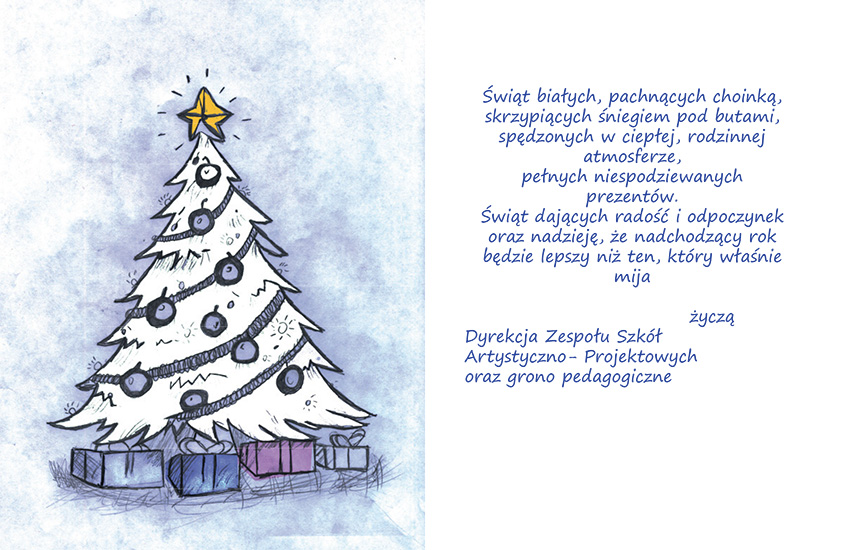 Świąt białych, pachnących choinką,
skrzypiących śniegiem pod butami,
spędzonych w ciepłej, rodzinnej
atmosferze,
pełnych niespodziewanych
prezentów.
Świąt dających radość i odpoczynek
oraz nadzieję, że nadchodzący rok
będzie lepszy niż ten, który właśnie
mija
życzą
Dyrekcja Zespołu Szkół
Artystyczno- Projektowych
oraz grono pedagogiczne